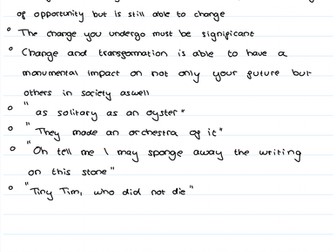 of opportunity but is still able to change
• The change you undergo must be significant
• Change and transformation is able to have a
monumental impact on not only your future but
others in society aswell
• "as solitary as an oyster"
• "They made an orchestra of it"
• "Oh tell me I may sponge away the writing
on this stone"
• "Tiny Tim, who did not die"